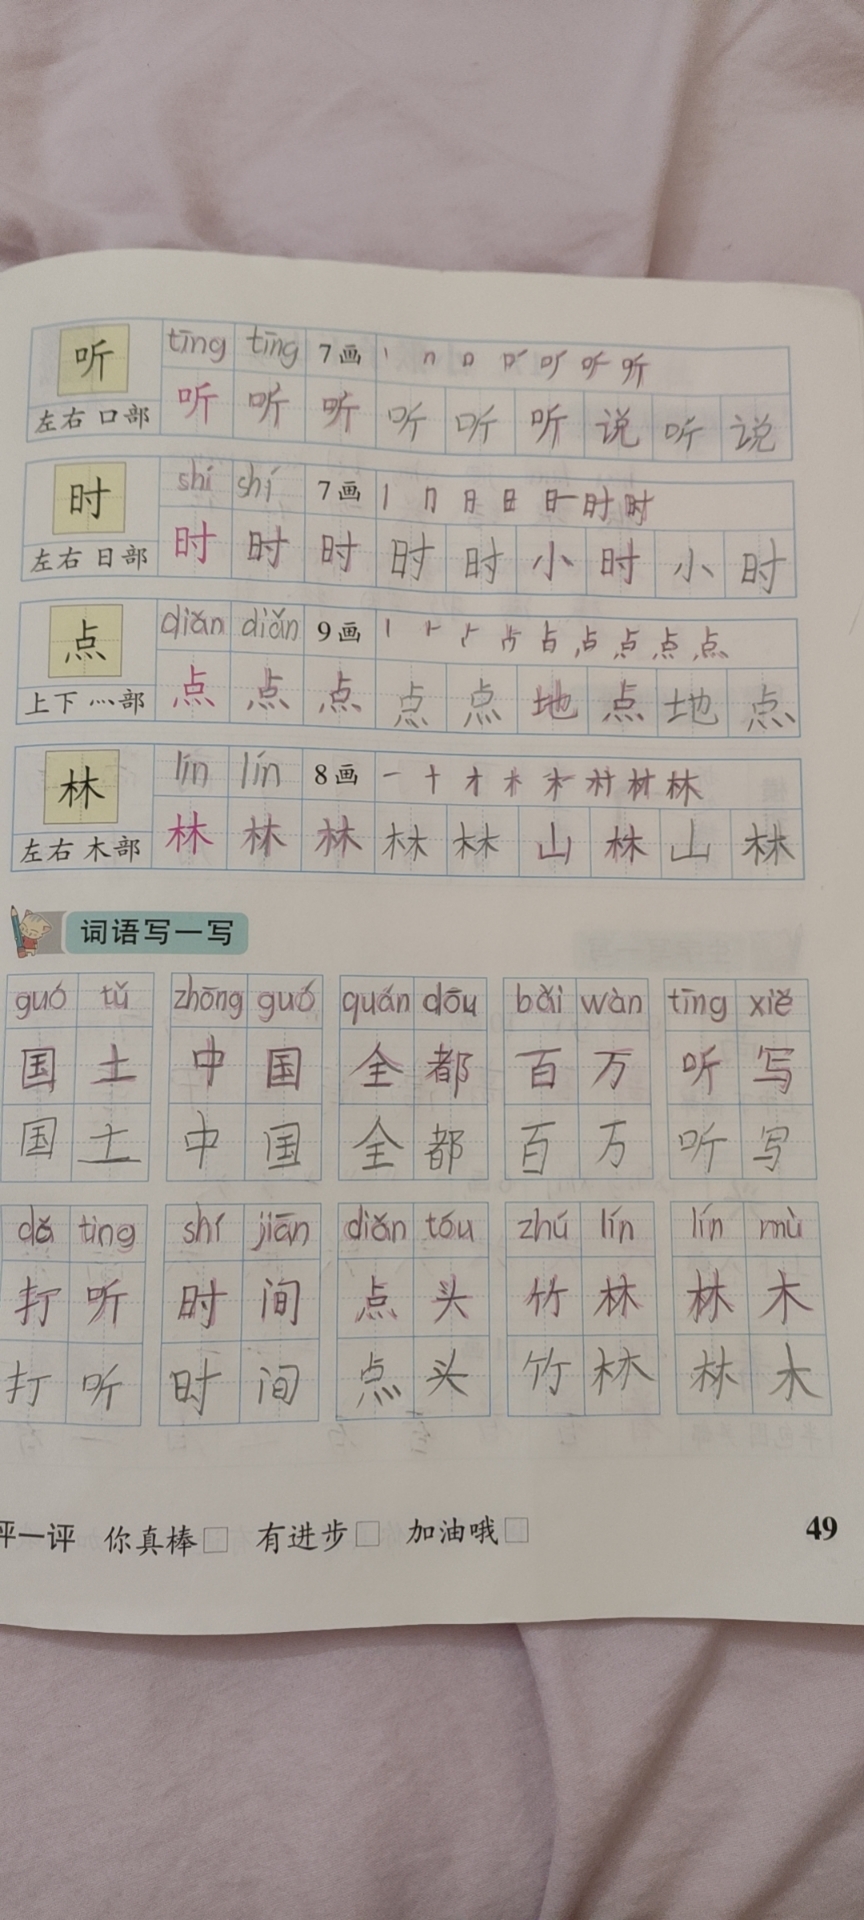 听 tīng tīng 7画 丨 𠃍 口 口' 叮 听 听
左右 口部 听 听 听 听 听 听 说 听 说
时 shí shí 7画 丨 冂 日 日 旪 时 时
左右 日部 时 时 时 时 时 小 时 小 时
点 diǎn diǎn 9画 丨 ⺊ 占 点 点
上下 灬部 点 点 点 点 点 地 点 地 点
林 lín lín 8画 一 十 才 木 木 村 材 林
左右 木部 林 林 林 林 林 山 林 山 林
词语写一写
guó tǔ zhōng guó quán dōu bǎi wàn tīng xiě
国 土 中 国 全 都 百 万 听 写
国 土 中 国 全 都 百 万 听 写
dǎ ting shí jiān diǎn tóu zhú lín lín mù
打 听 时 间 点 头 竹 林 林 木
打 听 时 间 点 头 竹 林 林 木
评一评 你真棒□ 有进步□ 加油哦□ 49